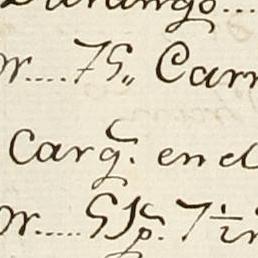 Durango...
or.... 75,, Carr
Carg. en el
or..... 51p. 7½